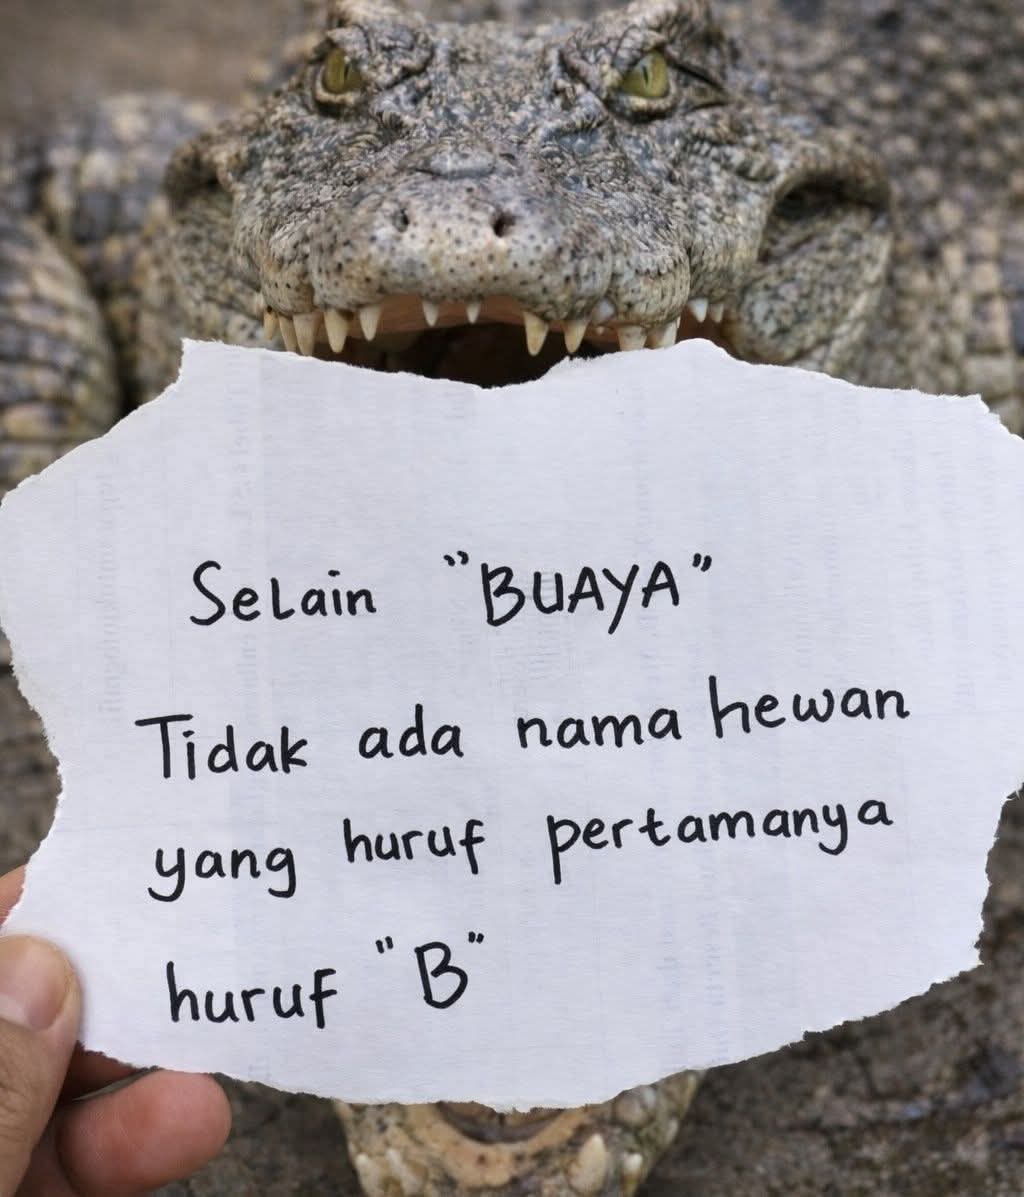 Selain "BUAYA"
Tidak ada nama hewan
yang huruf pertamanya
huruf "B"